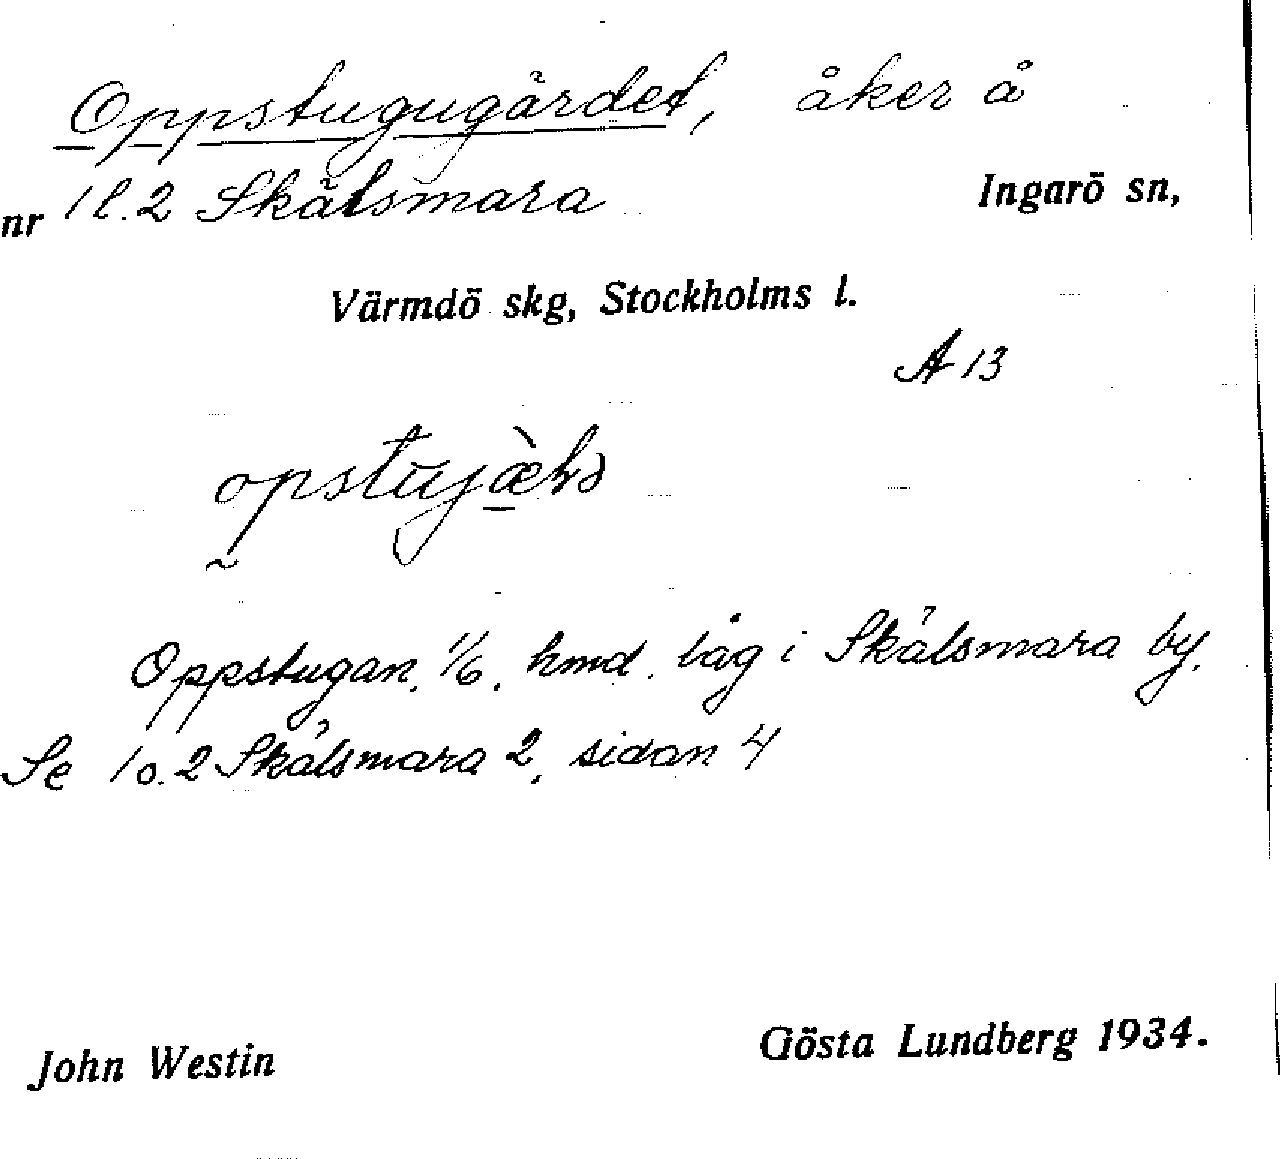 Oppstugugärdet, åker å
nr 1 l. 2 Skälsmara Ingarö sn,
Värmdö skg, Stockholms l.
A 13
Oppstugan, 1/6. hmd. låg i Skälsmara by.
Se 1 o. 2 Skälsmara 2, sidan 4
John Westin Gösta Lundberg 1934.